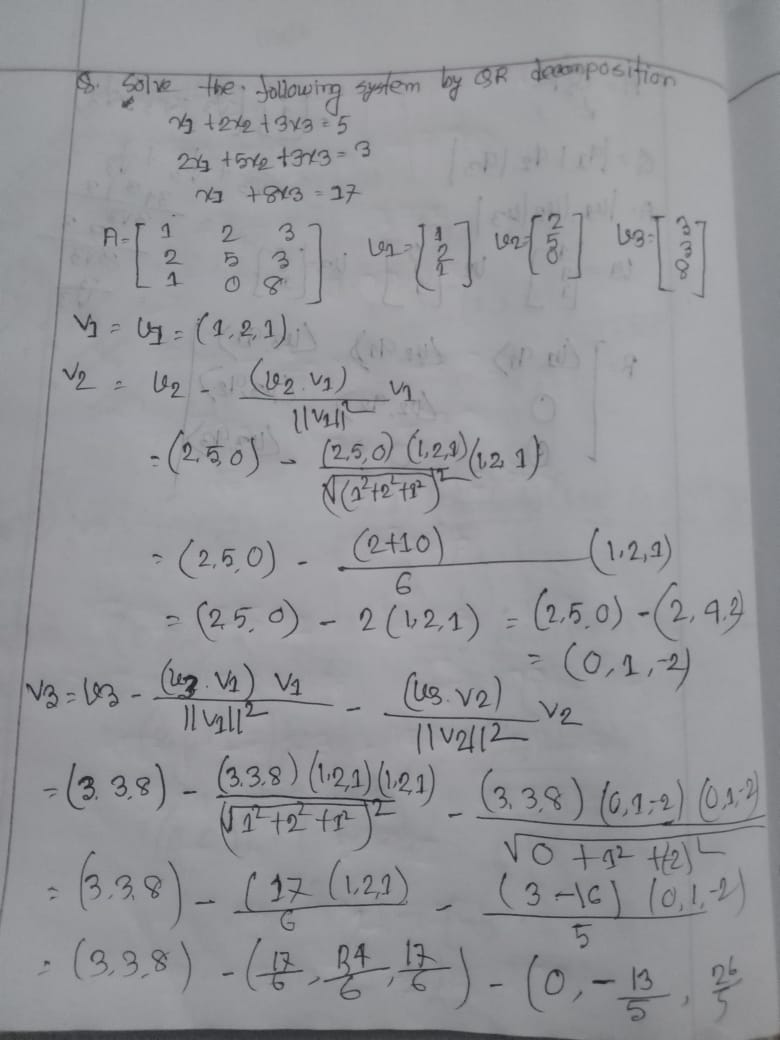 8. Solve the following system by QR decomposition
x1 + 2x2 + 3x3 = 5
2x1 + 5x2 + 3x3 = 3
x1 + 8x3 = 17
A = [ 1 2 3 ] u1 = [ 1 ] u2 = [ 2 ] u3 = [ 3 ]
2 5 3 2 5 3
1 0 8 1 0 8
V1 = u1 = (1, 2, 1)
V2 = u2 - (u2 . V1) / ||V1||² V1
= (2, 5, 0) - (2, 5, 0) (1, 2, 1) / (√(1²+2²+1²))² (1, 2, 1)
= (2, 5, 0) - (2+10) / 6 (1, 2, 1)
= (2, 5, 0) - 2 (1, 2, 1) = (2, 5, 0) - (2, 4, 2)
= (0, 1, -2)
V3 = u3 - (u3 . V1) V1 / ||V1||² - (u3 . V2) / ||V2||² V2
= (3, 3, 8) - (3, 3, 8) (1, 2, 1) (1, 2, 1) / (√1²+2²+1²)² - (3, 3, 8) (0, 1, -2) (0, 1, -2) / √0 + 1² + (2)²
= (3, 3, 8) - (17 (1, 2, 1) / 6 - (3 - 16) (0, 1, -2) / 5
= (3, 3, 8) - (17/6, 34/6, 17/6) - (0, -13/5, 26/5